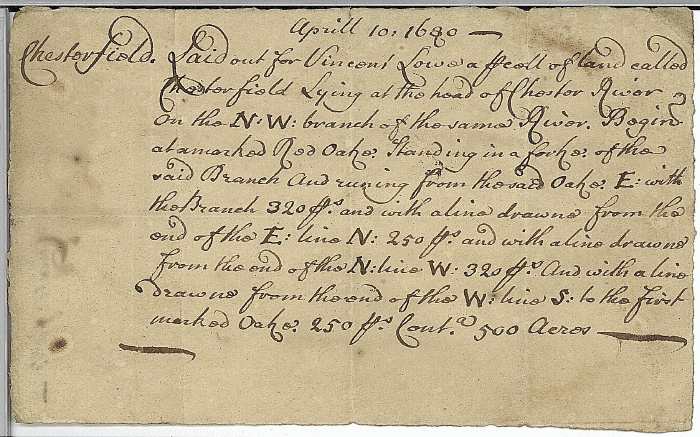 Aprill 10: 1680
Chesterfield. Laid out for Vincent Lowe a pcell of land called
Chesterfield Lying at the head of Chester River
on the N: W: branch of the same River. Begin
at a marked Red Oake Standing in a forke of the
said Branch And runing from the said Oake E: with
the Branch 320 ps and with a line drawne from the
end of the E: line N: 250 ps and with a line drawne
from the end of the N: line W: 320 ps And with a line
drawne from the end of the W: line S: to the first
marked Oake 250 ps Cont.g 500 Acres